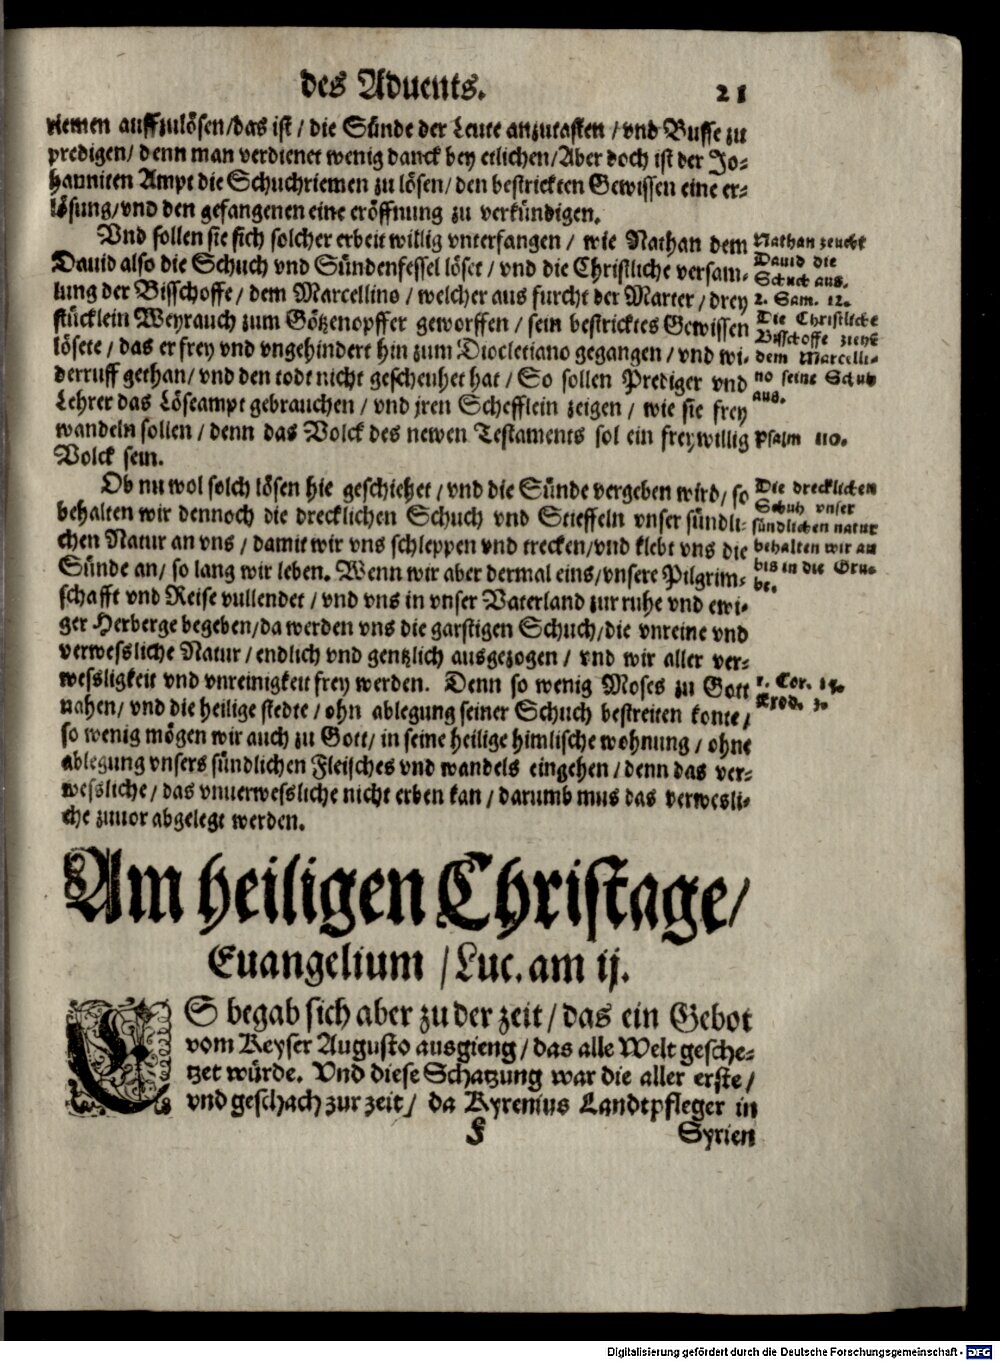 des Aduents. 21
riemen auffzulösen/das ist / die Sünde der Leute anzutasten / vnd Busse zu
predigen/ denn man verdienet wenig danck bey etlichen/Aber doch ist der Jo-
hanniten Ampt die Schuchriemen zu lösen/ den bestrickten Gewissen eine er-
lösung/vnd den gefangenen eine eröffnung zu verkündigen.
Vnd sollen sie sich solcher erbeit willig vnterfangen / wie Nathan dem
Dauid also die Schuch vnd Sündenfessel löset / vnd die Christliche versam-
lung der Bisschoffe / dem Marcellino / welcher aus furcht der Marter / drey
stücklein Weyrauch zum Götzenopffer geworffen / sein bestricktes Gewissen
lösete / das er frey vnd vngehindert hin zum Diocletiano gegangen / vnd wi-
derruff gethan/ vnd den todt nicht gescheuhet hat / So sollen Prediger vnd
Lehrer das Löseampt gebrauchen / vnd jren Schefflein zeigen / wie sie frey
wandeln sollen / denn das Volck des newen Testaments sol ein freywillig
Volck sein.
Nathan zeucht
Dauid die
Schuch aus.
2. Sam. 12.
Die Christliche
Bisschoffe zeuhe
dem Marcelli-
no seine Schuh
aus.
Psalm 110.
Ob nu wol solch lösen hie geschiehet / vnd die Sünde vergeben wird/ so
behalten wir dennoch die drecklichen Schuch vnd Stieffeln vnser sündli-
chen Natur an vns / damit wir vns schleppen vnd trecken/vnd klebt vns die
Sünde an/ so lang wir leben. Wenn wir aber dermal eins/vnsere Pilgrim-
schafft vnd Reise vullendet / vnd vns in vnser Vaterland zur ruhe vnd ewi-
ger Herberge begeben/da werden vns die garstigen Schuch/die vnreine vnd
verwessliche Natur / endlich vnd gentzlich ausgezogen / vnd wir aller ver-
wessligkeit vnd vnreinigkeit frey werden. Denn so wenig Moses zu Gott
nahen/ vnd die heilige stedte / ohn ablegung seiner Schuch bestreiten konte /
so wenig mögen wir auch zu Gott/ in seine heilige himlische wohnung / ohne
ablegung vnsers sündlichen Fleisches vnd wandels eingehen / denn das ver-
wessliche / das vnuerwessliche nicht erben kan / darumb mus das verwesli-
che zuuor abgelegt werden.
Die drecklichen
Schuh vnser
sündlichen natur
behalten wir an
bis in die Gru-
be.
1. Cor. 15.
Exod. 3.
Am heiligen Christage/
Euangelium / Luc. am ij.
ES begab sich aber zu der zeit / das ein Gebot
vom Keyser Augusto ausgieng / das alle Welt gesche-
tzet würde. Vnd diese Schatzung war die aller erste /
vnd geschach zur zeit / da Kyrenius Landtpfleger in
F Syrien
Digitalisierung gefördert durch die Deutsche Forschungsgemeinschaft - DFG